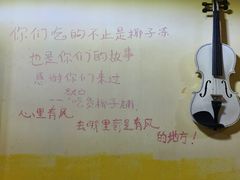 你们吃的不止是椰子冻
也是你们的故事
感谢你们来过
吃货椰子铺
心里有风
去哪里都是有风
的地方！